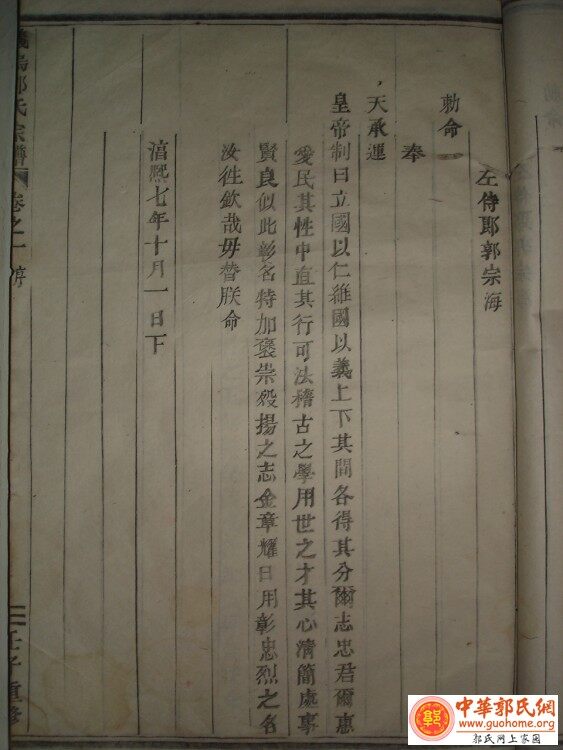 左侍郎郭宗海
勅命
奉
天承運
皇帝制曰立國以仁維國以義上下其間各得其分爾志忠君爾惠
愛民其性中直其行可法稽古之學用世之才其心清簡處事
賢良似此彰名特加褒崇殁揚之志金章耀日用彰忠烈之名
汝徃欽哉毋替朕命
淳熈七年十月一日下
郭氏宗譜 卷之一 序
壬子重修
中華郭氏網
http://www.guohome.org
郭氏网上家园